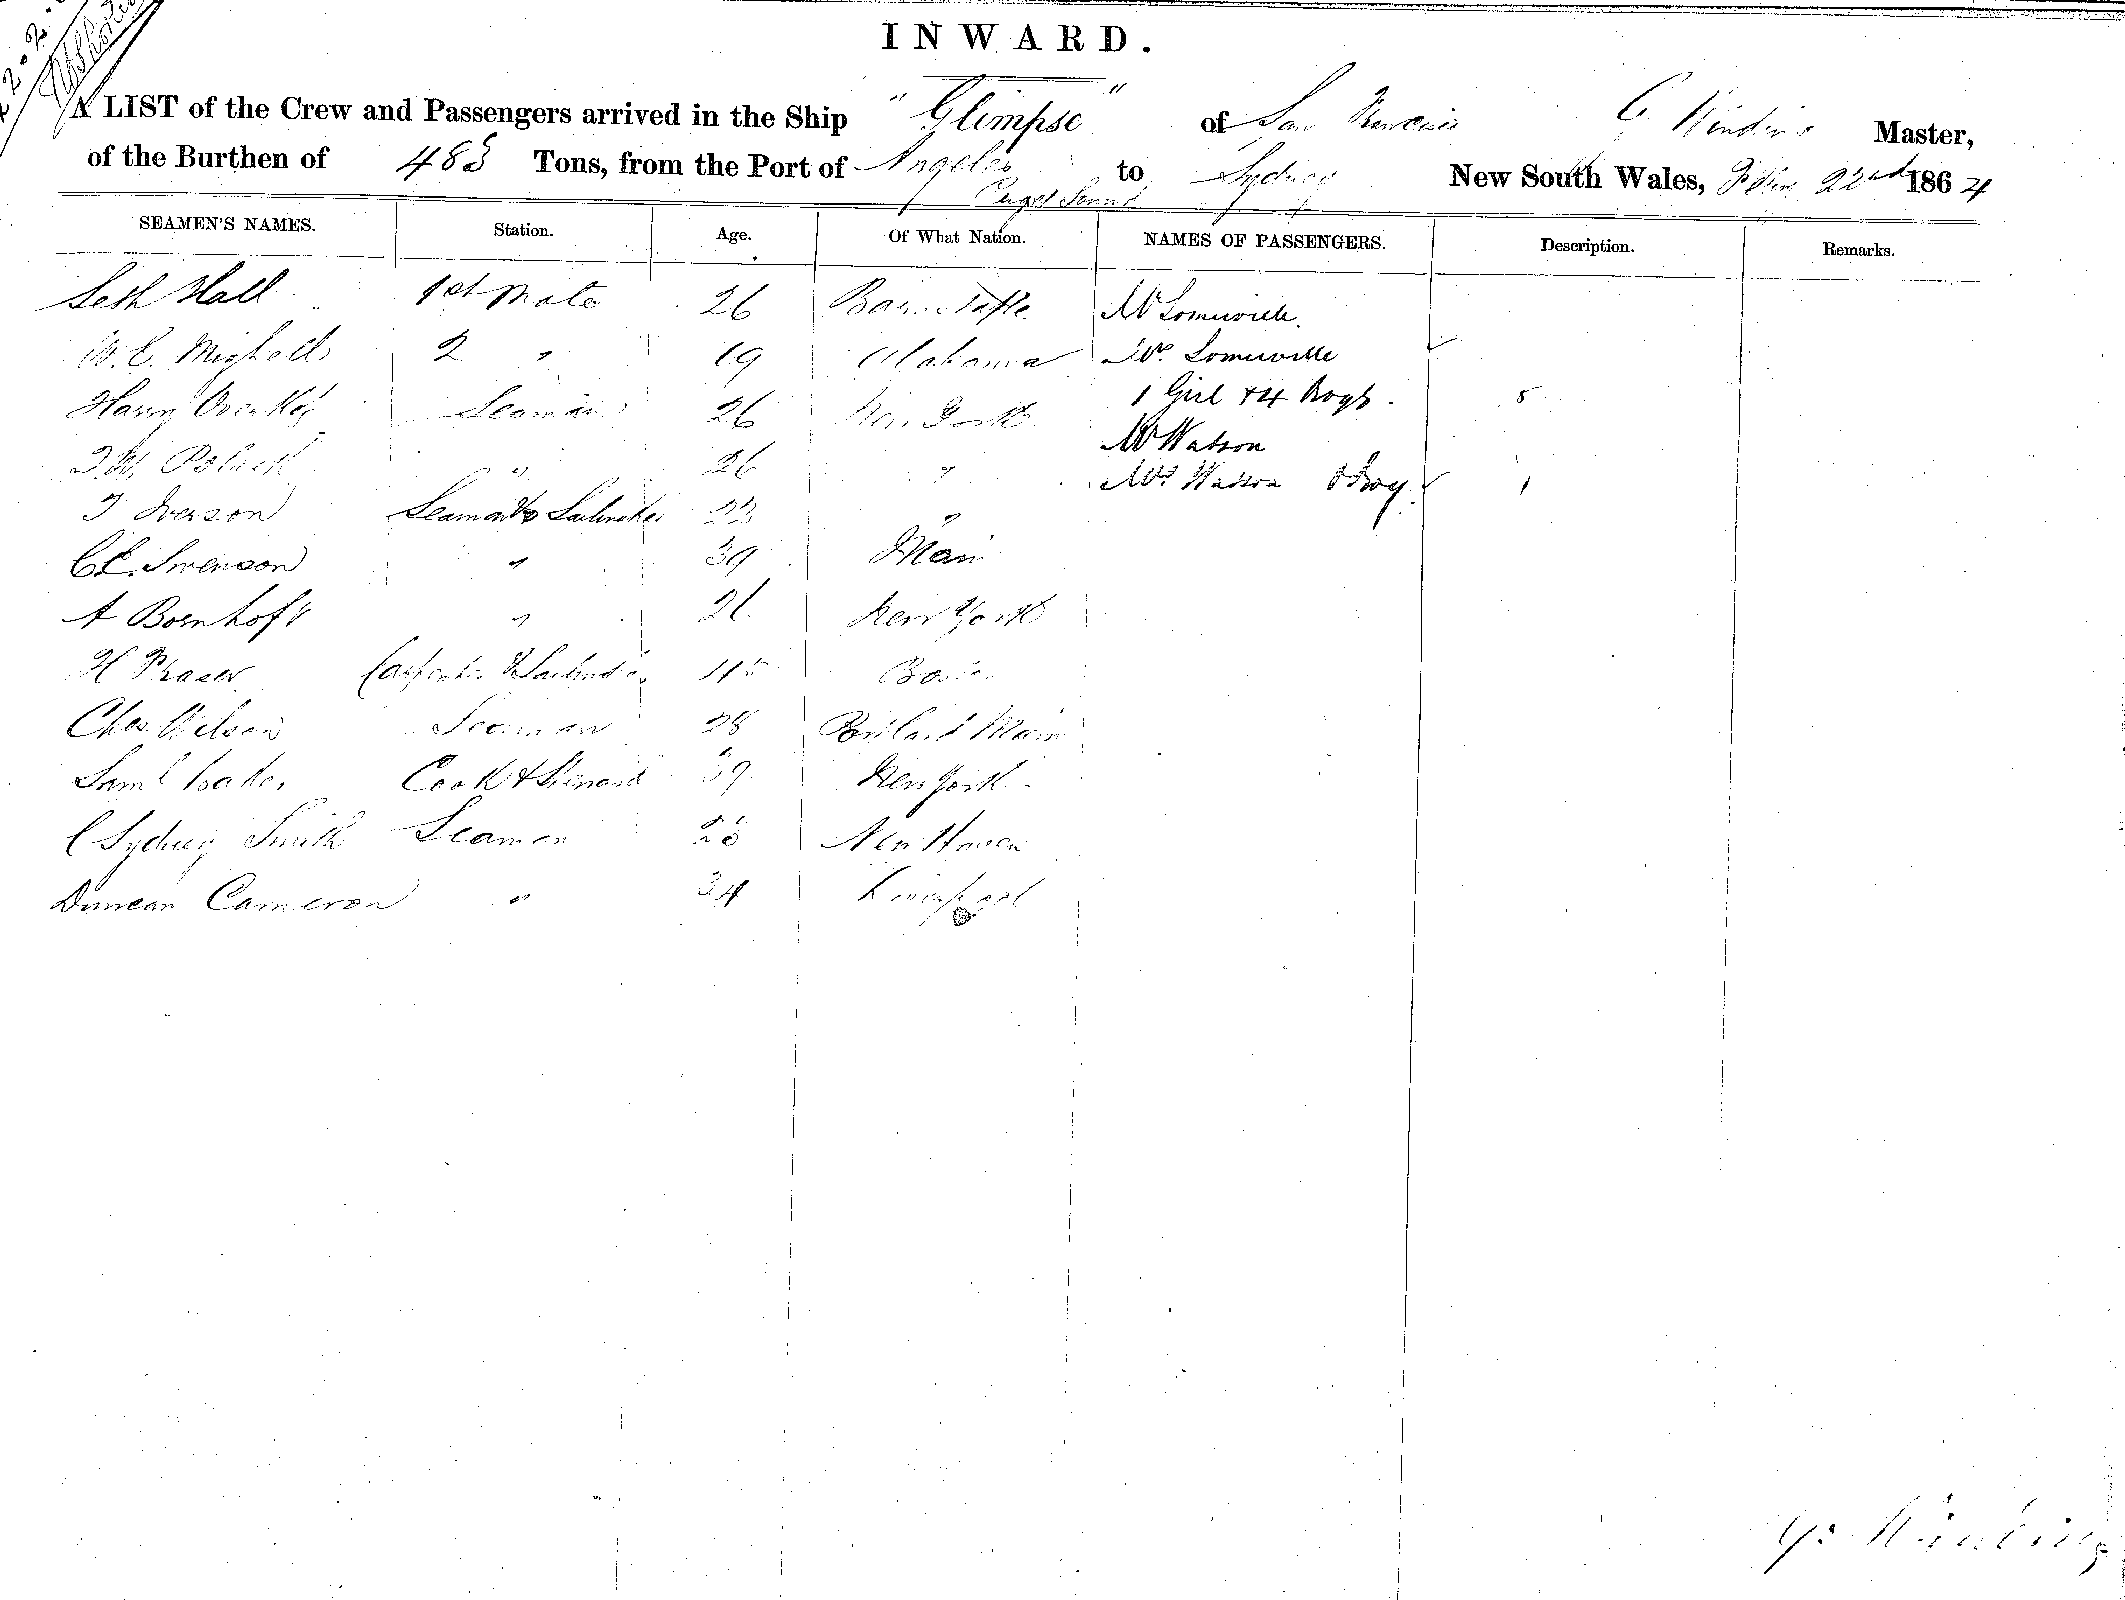 INWARD.
A LIST of the Crew and Passengers arrived in the Ship "Glimpse" of San Master,
of the Burthen of 483 Tons, from the Port of Angelos to Sydney New South Wales, 22nd 1864
Puget Sound
SEAMEN'S NAMES. Station. Age. Of What Nation. NAMES OF PASSENGERS. Description. Remarks.
Seth Hall 1st Mate 26 Barnstable Mr Somerville.
W. E. Mighells 2 " 19 Alabama Mrs Somerville
Harry Seaman 26 New York 1 Girl & 4 Boys. 5
Polack " 26 " Mr Watson
Mrs Watson & Boy 1
T Iverson Seaman & Sailmaker 23 "
C E. Swenson " 39 Main
A Bornhoft " 26 New York
H Fraser Carpenter & 45
Chas Wilson Seaman 28 Portland Main
Saml Cook & Steward 39 New York
C Sydney Smith Seaman 23 New Haven
Duncan Cameron " 34 Liverpool